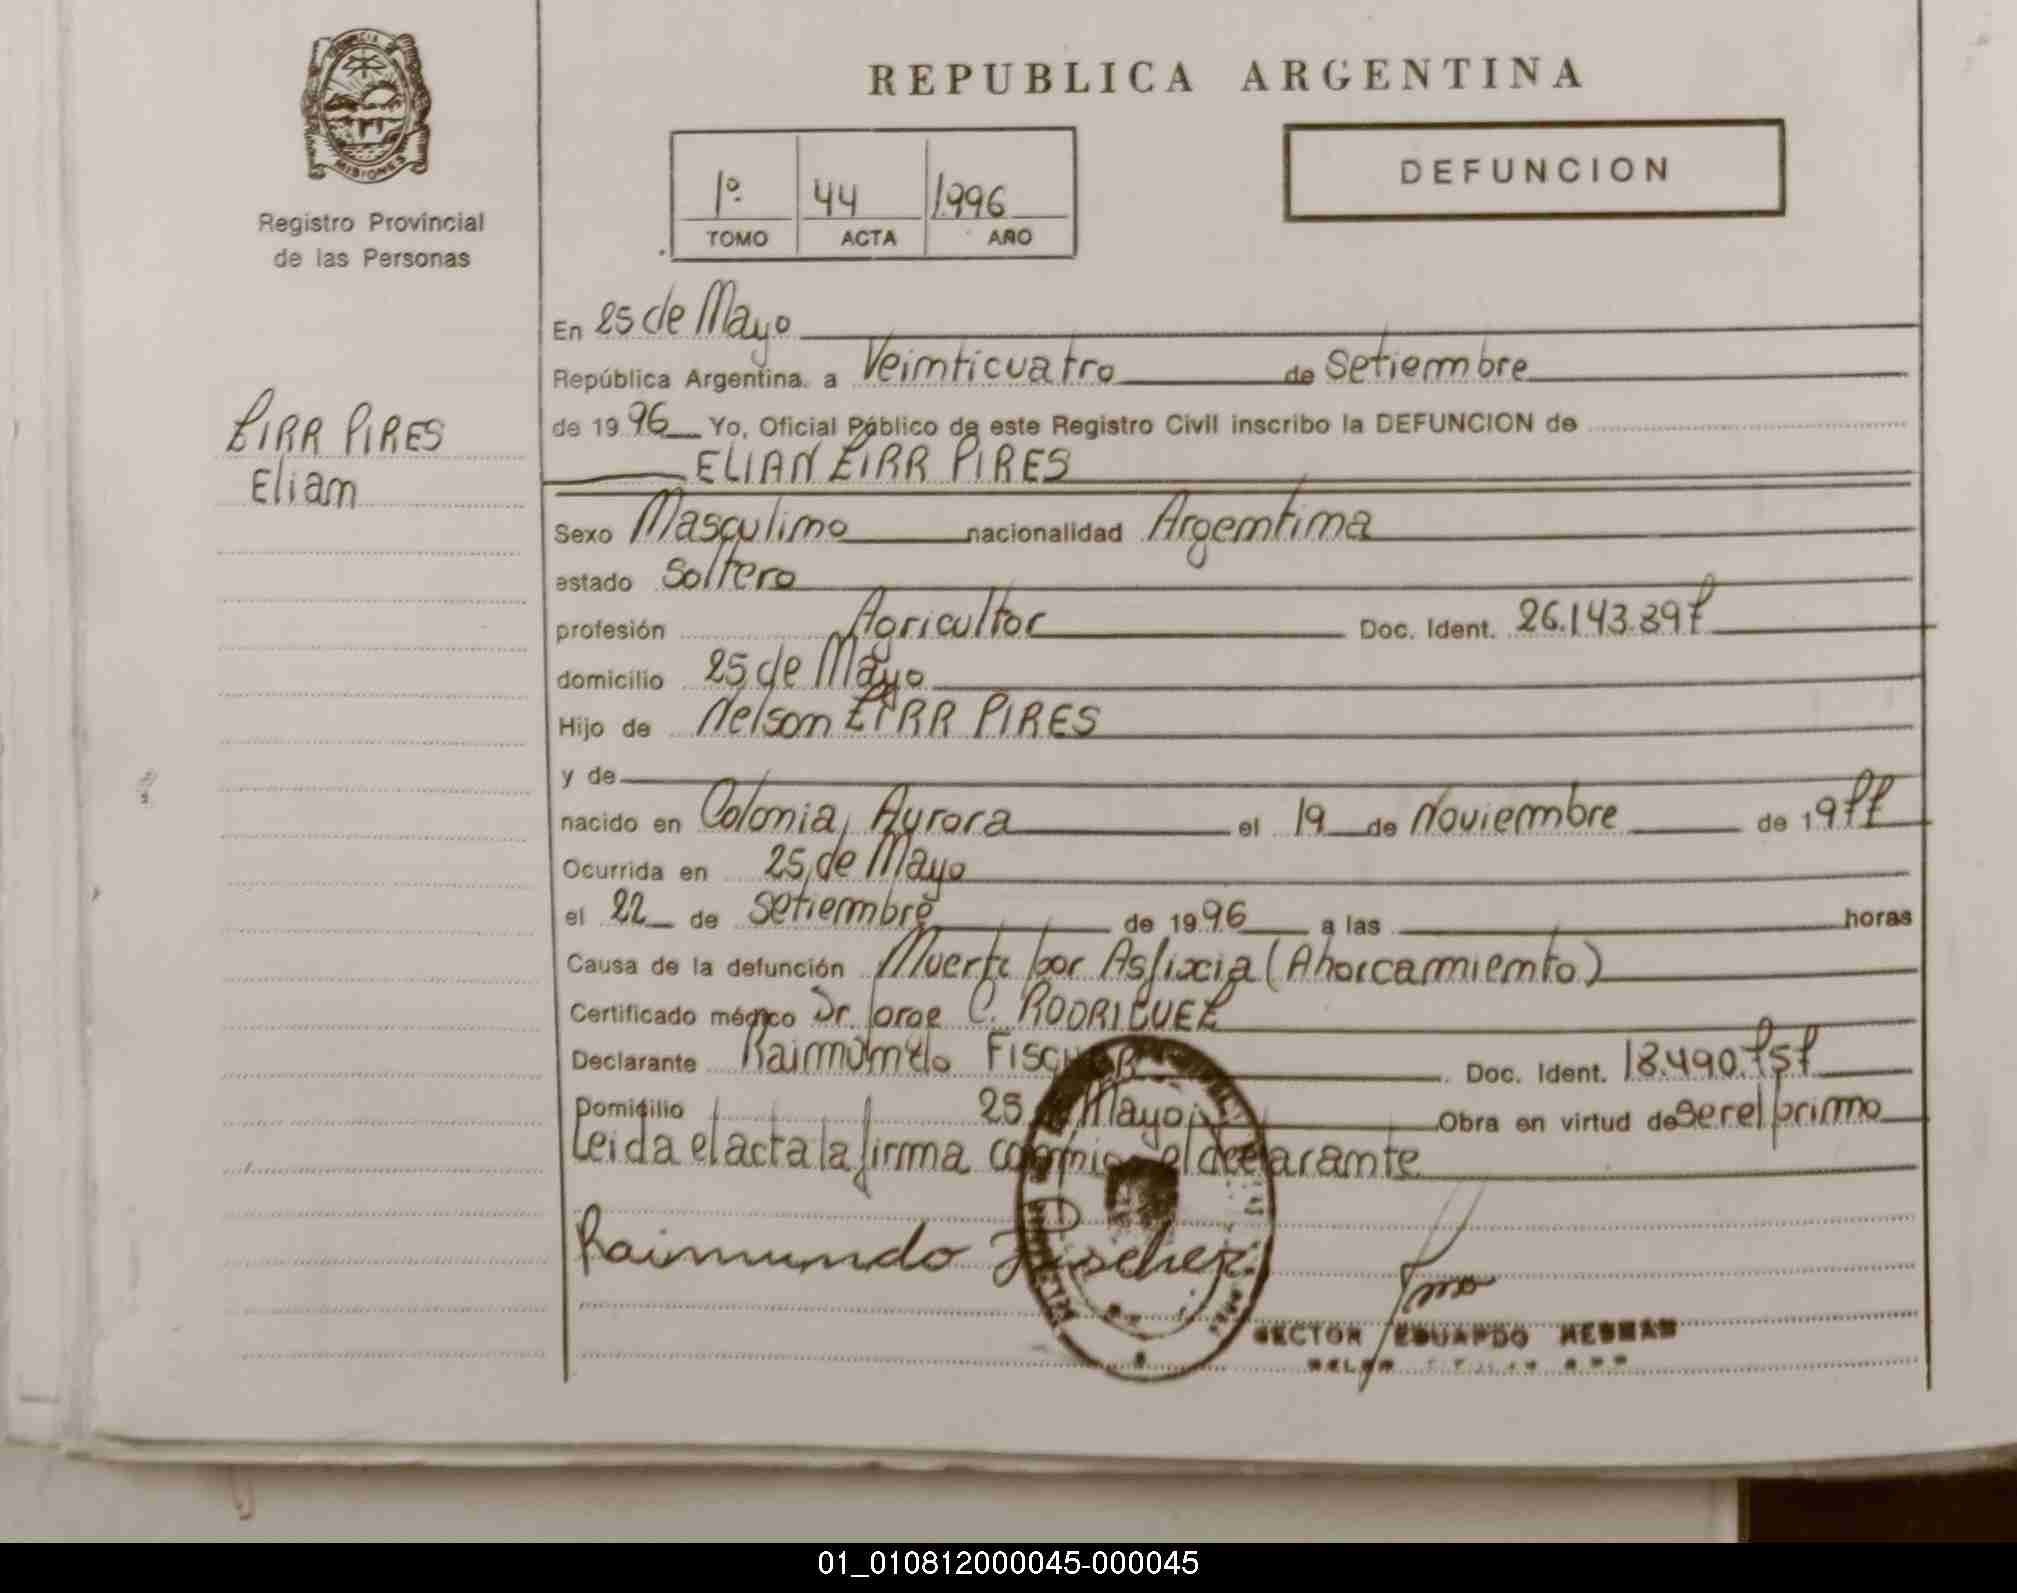 REPUBLICA ARGENTINA
PROVINCIA
MISIONES
Registro Provincial
de las Personas
1º 44 1996
TOMO ACTA AÑO
DEFUNCION
En 25 de Mayo
República Argentina. a Veinticuatro de Setiembre
de 1996 Yo, Oficial Público de este Registro Civil inscribo la DEFUNCION de
ELIAN ZIRR PIRES
ZIRR PIRES
Elian
Sexo Masculino nacionalidad Argentina
estado Soltero
profesión Agricultor Doc. Ident. 26.143.397
domicilio 25 de Mayo
Hijo de Nelson ZIRR PIRES
y de
nacido en Colonia Aurora el 19 de Noviembre de 1977
Ocurrida en 25 de Mayo
el 22 de Setiembre de 1996 a las horas
Causa de la defunción Muerte por Asfixia (Ahorcamiento)
Certificado médico Dr. Jorge C. RODRIGUEZ
Declarante Raimundo FISCHER Doc. Ident. 18.490.757
Domicilio 25 de Mayo Obra en virtud de ser el primo
Leida el acta la firma conmigo el declarante
Raimundo Fischer
HECTOR EDUARDO
01_010812000045-000045